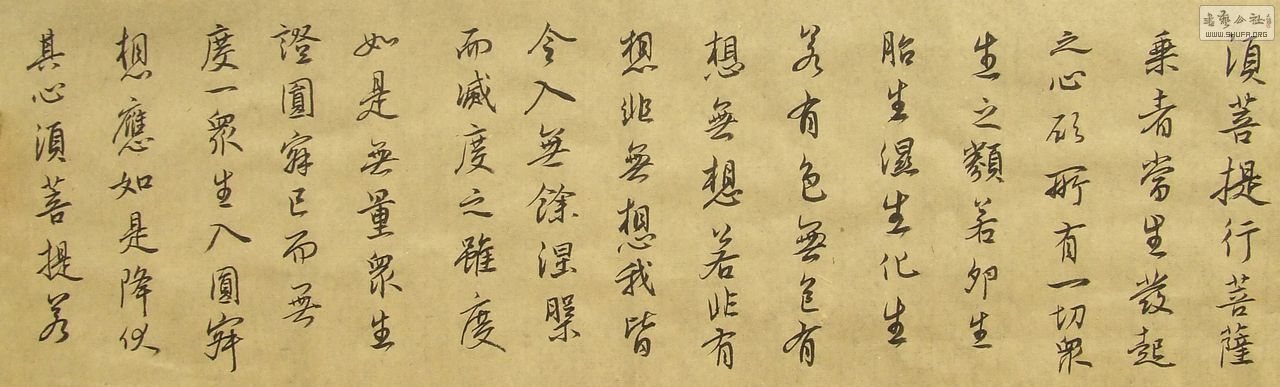 須菩提行菩薩
乘者當生發起
之心所有一切眾
生之類若卵生
胎生濕生化生
若有色無色有
想無想若非有
想非無想我皆
令入無餘涅槃
而滅度之雖度
如是無量眾生
證圓寂已而無
度一眾生入圓寂
想應如是降伏
其心須菩提若
書藝公社
WWW.SHUFA.ORG